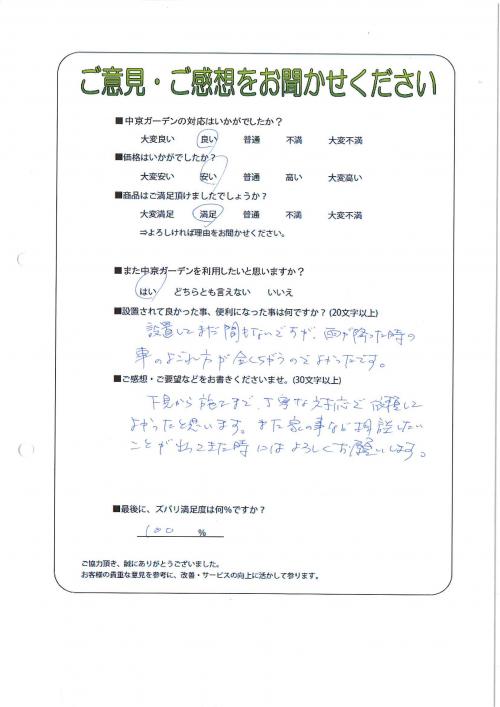 ご意見・ご感想をお聞かせください
■中京ガーデンの対応はいかがでしたか？
大変良い 良い 普通 不満 大変不満
■価格はいかがでしたか？
大変安い 安い 普通 高い 大変高い
■商品はご満足頂けましたでしょうか？
大変満足 満足 普通 不満 大変不満
⇒よろしければ理由をお聞かせください。
■また中京ガーデンを利用したいと思いますか？
はい どちらとも言えない いいえ
■設置されて良かった事、便利になった事は何ですか？(20文字以上)
設置してまだ間もないですが、雨が降った時の
車のよごれ方が全くちがうのでよかったです。
■ご感想・ご要望などをお書きくださいませ。(30文字以上)
下見から施工まで、丁寧な対応で依頼して
よかったと思います。また家の事など相談したい
ことが出てきた時にはよろしくお願いします。
■最後に、ズバリ満足度は何%ですか？
100 %
ご協力頂き、誠にありがとうございました。
お客様の貴重な意見を参考に、改善・サービスの向上に活かして参ります。